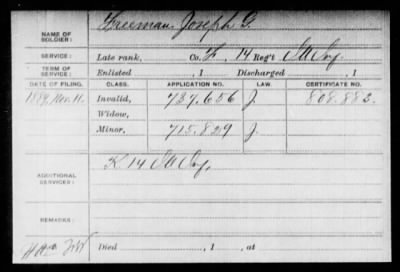 NAME OF SOLDIER: Freeman, Joseph G.
SERVICE: Late rank, Co. F, 14 Reg't
TERM OF SERVICE: Enlisted , 1 Discharged , 1
DATE OF FILING. CLASS. APPLICATION NO. LAW. CERTIFICATE NO.
1889, Nov. 11. Invalid, 737.656 J. 808.883.
Widow,
Minor, 715.829 J.
ADDITIONAL SERVICES: K 14
REMARKS:
Died , 1 , at